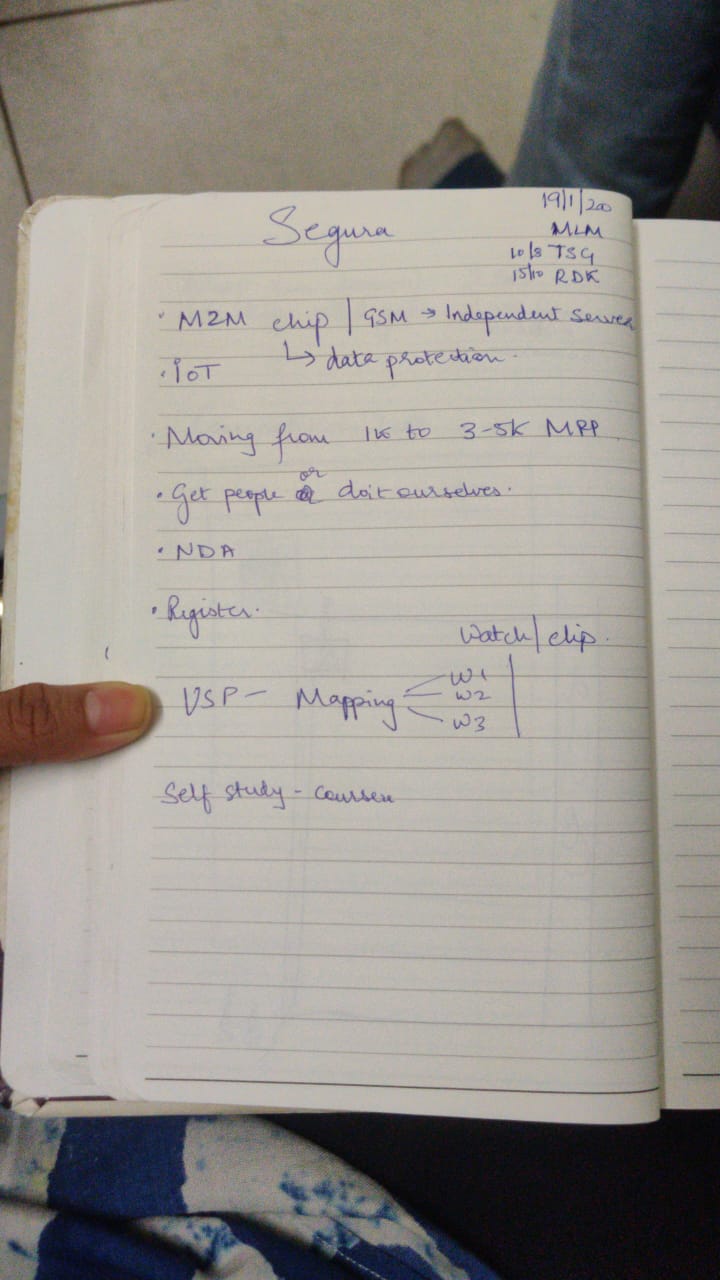 19/1/20
Segura
MLM
10/8 TSG
15/10 RDK
· M2M chip | GSM → Independent Server
↳ data protection.
· IoT
· Moving from 1K to 3-5K MRP
· Get people or do it ourselves.
· NDA
· Register.
Watch/chip.
USP - Mapping
W1
W2
W3
Self study - courses